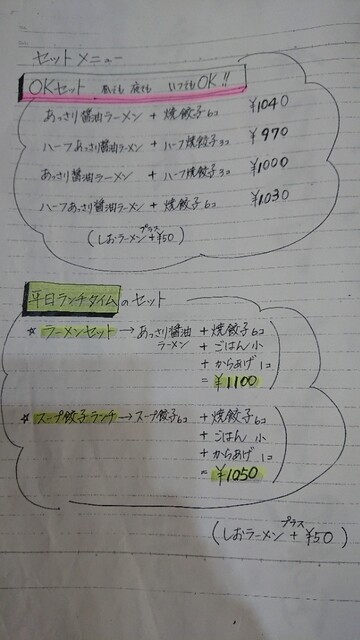 セットメニュー
OKセット 昼でも 夜でも いつでもOK!!
あっさり醤油ラーメン + 焼餃子6コ ¥1040
ハーフあっさり醤油ラーメン + ハーフ焼餃子3コ ¥970
あっさり醤油ラーメン + ハーフ焼餃子3コ ¥1000
ハーフあっさり醤油ラーメン + 焼餃子6コ ¥1030
プラス
(しおラーメン+¥50)
平日ランチタイムのセット
☆ ラーメンセット → あっさり醤油ラーメン + 焼餃子6コ
+ ごはん 小
+ からあげ 1コ
= ¥1100
☆ スープ餃子ランチ → スープ餃子6コ + 焼餃子6コ
+ ごはん 小
+ からあげ 1コ
= ¥1050
プラス
(しおラーメン + ¥50)